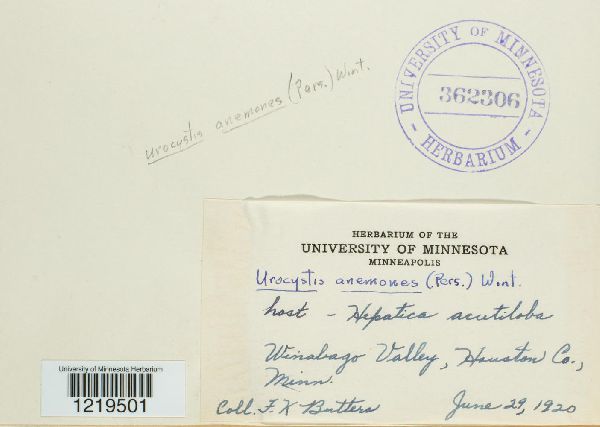 Urocystis anemones (Pers.) Wint.
UNIVERSITY OF MINNESOTA
362306
- HERBARIUM -
HERBARIUM OF THE
UNIVERSITY OF MINNESOTA
MINNEAPOLIS
Urocystis anemones (Pers.) Wint.
host - Hepatica acutiloba
Winabago Valley, Houston Co.,
Minn.
Coll. F. K Butters June 29, 1920
University of Minnesota Herbarium
1219501